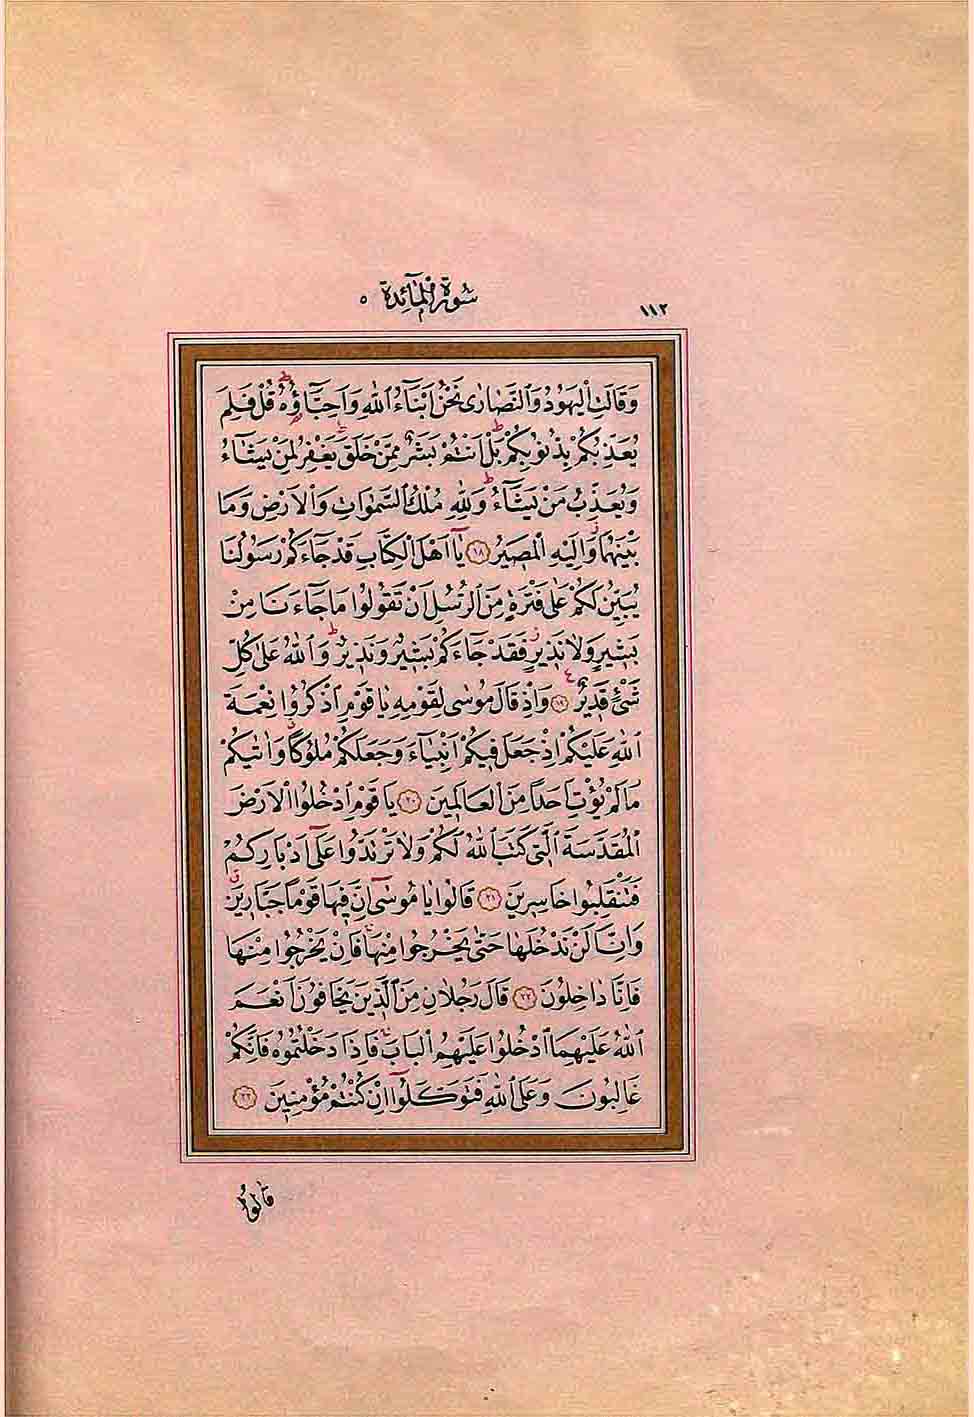 ١١٢
سُورَةُ الْمَآئِدَةِ ٥
وَقَالَتِ الْيَهُودُ وَالنَّصَارٰى نَحْنُ اَبْنَٓاءُ اللّٰهِ وَاَحِبَّٓاؤُ۬هُۜ قُلْ فَلِمَ
يُعَذِّبُكُمْ بِذُنُوبِكُمْۜ بَلْ اَنْتُمْ بَشَرٌ مِمَّنْ خَلَقَۜ يَغْفِرُ لِمَنْ يَشَٓاءُ
وَيُعَذِّبُ مَنْ يَشَٓاءُۜ وَلِلّٰهِ مُلْكُ السَّمٰوَاتِ وَالْاَرْضِ وَمَا
بَيْنَهُمَاۘ وَاِلَيْهِ الْمَصِيرُ ﴿١٨﴾ يَٓا اَهْلَ الْكِتَابِ قَدْ جَٓاءَكُمْ رَسُولُنَا
يُبَيِّنُ لَكُمْ عَلٰى فَتْرَةٍ مِنَ الرُّسُلِ اَنْ تَقُولُوا مَا جَٓاءَنَا مِنْ
بَشِيرٍ وَلَا نَذِيرٍۘ فَقَدْ جَٓاءَكُمْ بَشِيرٌ وَنَذِيرٌۜ وَاللّٰهُ عَلٰى كُلِّ
شَيْءٍ قَدِيرٌ۟ ﴿١٩﴾ وَاِذْ قَالَ مُوسٰى لِقَوْمِهِ يَا قَوْمِ اذْكُرُوا نِعْمَةَ
اللّٰهِ عَلَيْكُمْ اِذْ جَعَلَ فِيكُمْ اَنْبِيَٓاءَ وَجَعَلَكُمْ مُلُوكًاۗ وَاٰتٰيكُمْ
مَا لَمْ يُؤْتِ اَحَدًا مِنَ الْعَالَمِينَ ﴿٢٠﴾ يَا قَوْمِ ادْخُلُوا الْاَرْضَ
الْمُقَدَّسَةَ الَّتِي كَتَبَ اللّٰهُ لَكُمْ وَلَا تَرْتَدُّوا عَلٰٓى اَدْبَارِكُمْ
فَتَنْقَلِبُوا خَاسِرِينَ ﴿٢١﴾ قَالُوا يَا مُوسٰٓى اِنَّ فِيهَا قَوْمًا جَبَّارِينَۗ
وَاِنَّا لَنْ نَدْخُلَهَا حَتّٰى يَخْرُجُوا مِنْهَاۚ فَاِنْ يَخْرُجُوا مِنْهَا
فَاِنَّا دَاخِلُونَ ﴿٢٢﴾ قَالَ رَجُلَانِ مِنَ الَّذِينَ يَخَافُونَ اَنْعَمَ
اللّٰهُ عَلَيْهِمَا ادْخُلُوا عَلَيْهِمُ الْبَابَۚ فَاِذَا دَخَلْتُمُوهُ فَاِنَّكُمْ
غَالِبُونَ وَعَلَى اللّٰهِ فَتَوَكَّلُٓوا اِنْ كُنْتُمْ مُؤْمِنِينَ ﴿٢٣﴾
قَالُوا